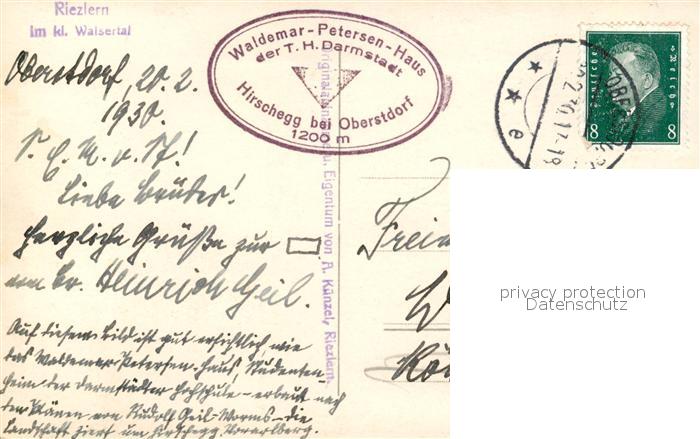 Riezlern
im kl. Walsertal
Waldemar-Petersen-Haus
der T. H. Darmstadt
Hirschegg bei Oberstdorf
1200 m
Deutsches Reich
8 8
Oberstdorf, 20.2.
1930.
Liebe Brüder!
Herzliche Grüße zur
von Br. Heinrich Geil.
Auf diesem Bild ist gut ersichtlich, wie
das Waldemar Petersen-Haus, Studenten-
heim der Darmstädter Hochschule – erbaut nach
den Plänen von Rudolf Geil-Worms – die
Landschaft ziert um Hirschegg, Vorarlberg.
Eigentum von A. Künzel, Riezlern.
privacy protection
Datenschutz